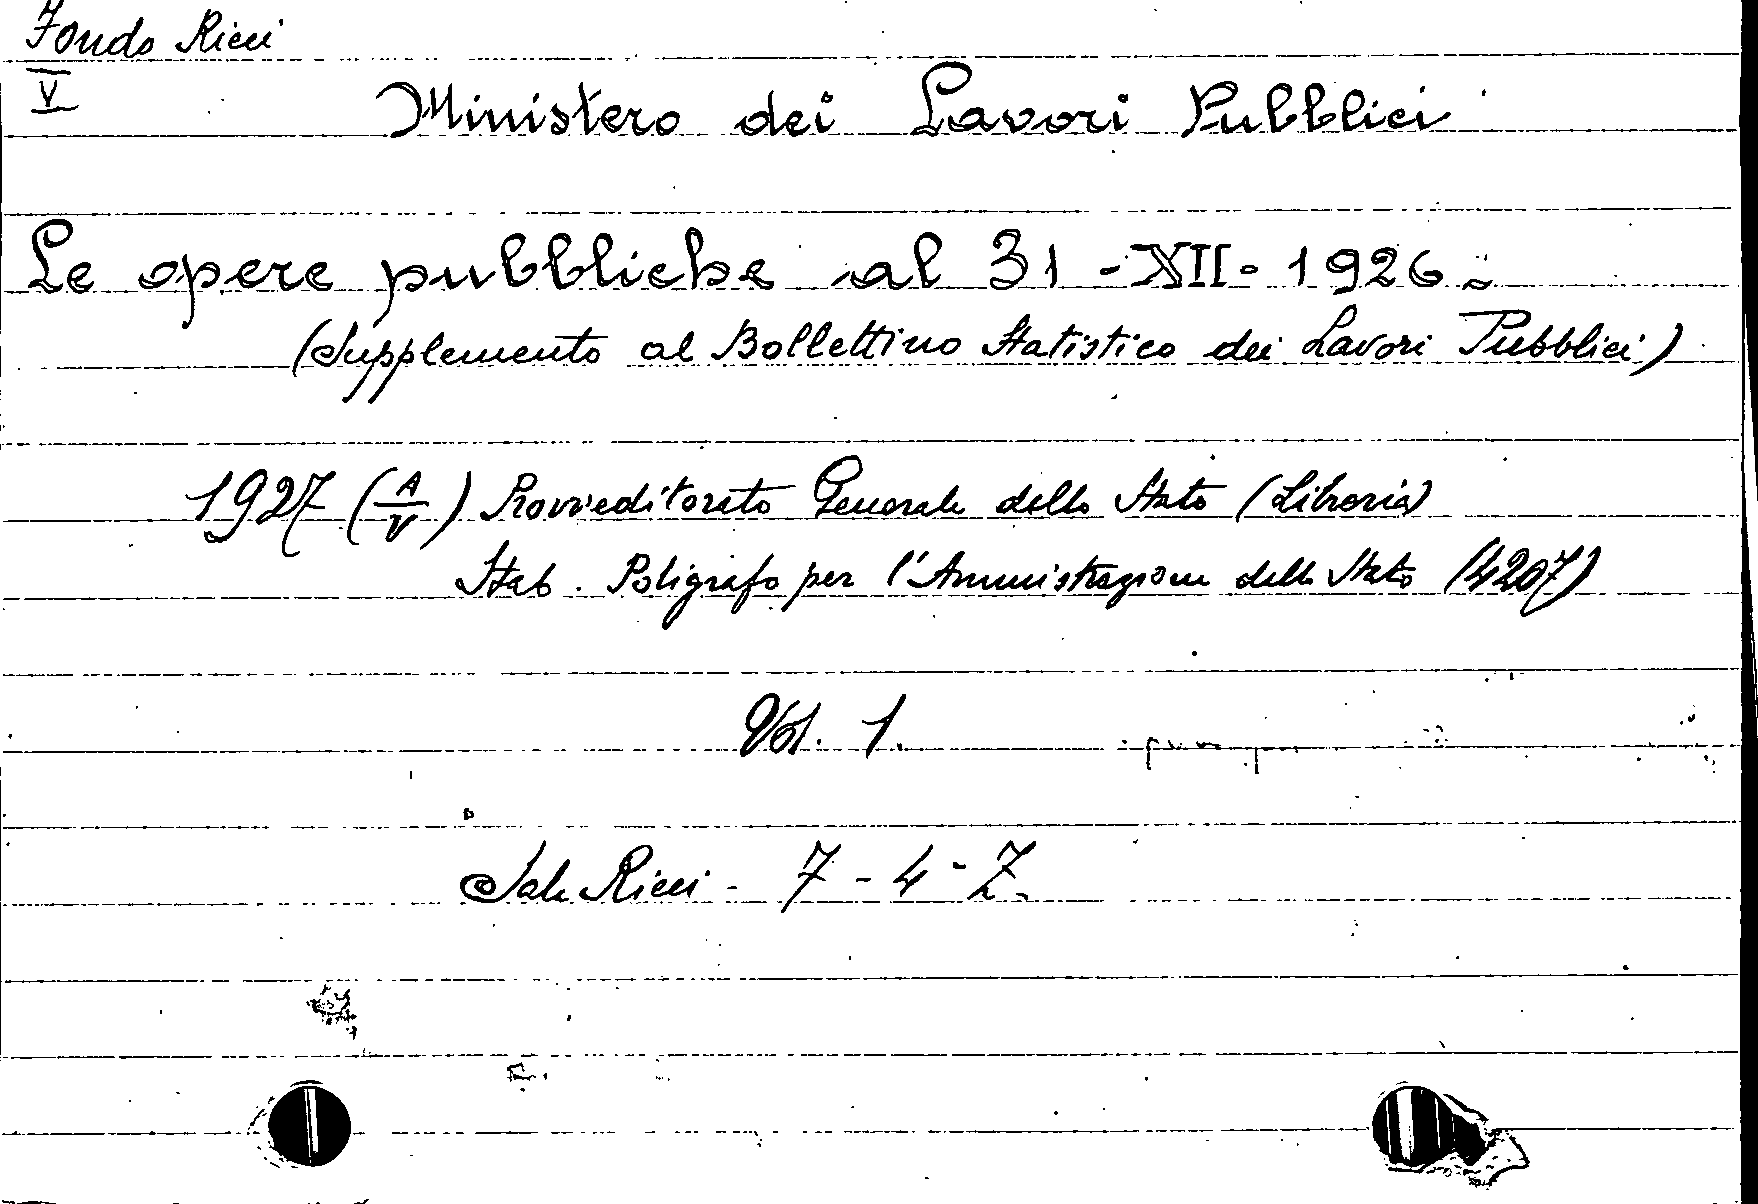 Fondo Ricci
V
Ministero dei Lavori Pubblici
Le opere pubbliche al 31-XII-1926.
(Supplemento al Bollettino Statistico dei Lavori Pubblici)
1927 (A/V) Provveditorato Generale dello Stato (Libreria)
Stab. Poligrafo per l'Amministrazione dello Stato (4207)
Vol. 1.
Sala Ricci - 7-4-7.